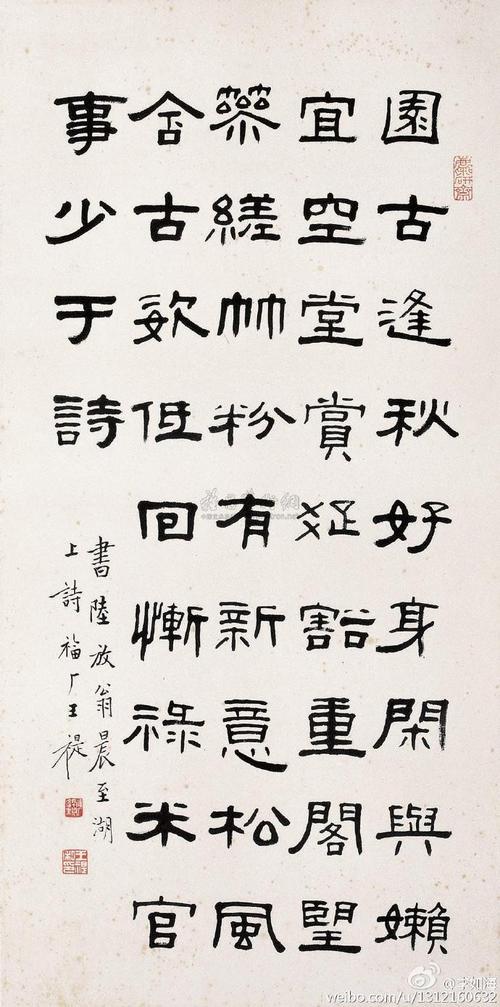 園古逢秋好身閑與嬾
宜空堂賞疏豁重閣望
參縒竹粉有新意松風
含古姿低回慚祿米官
事少于詩
書陸放翁晨至湖
上詩福厂王禔
麋研齋
@李如海
weibo.com/u/1312160632